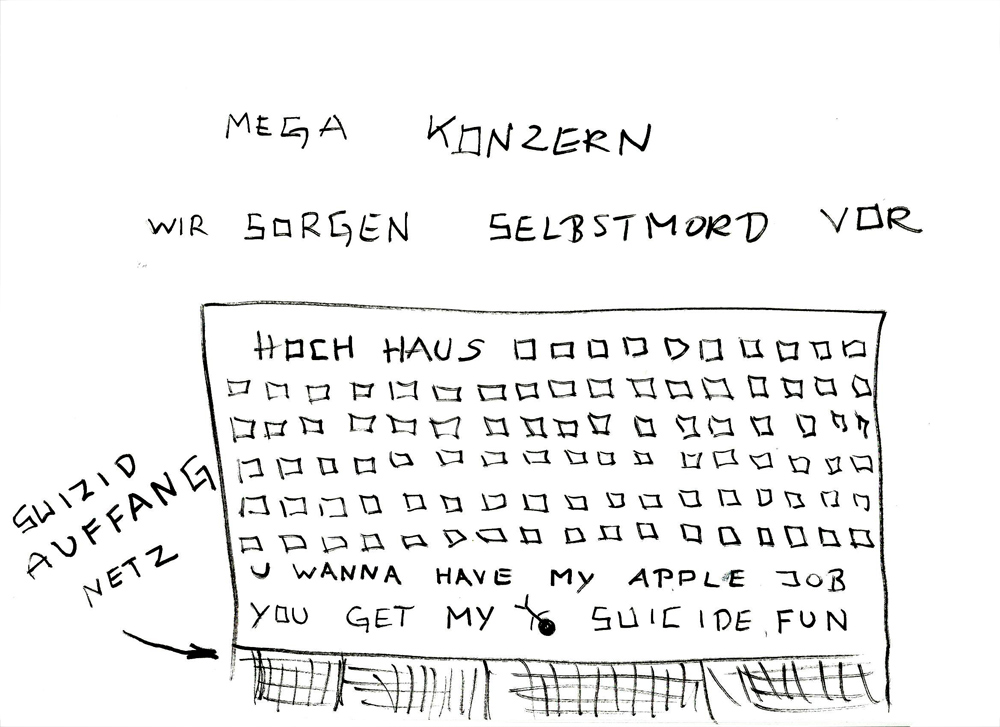 MEGA KONZERN
WIR SORGEN SELBSTMORD VOR
HOCH HAUS
SUIZID
AUFFANG
NETZ
U WANNA HAVE MY APPLE JOB
YOU GET MY SUICIDE FUN